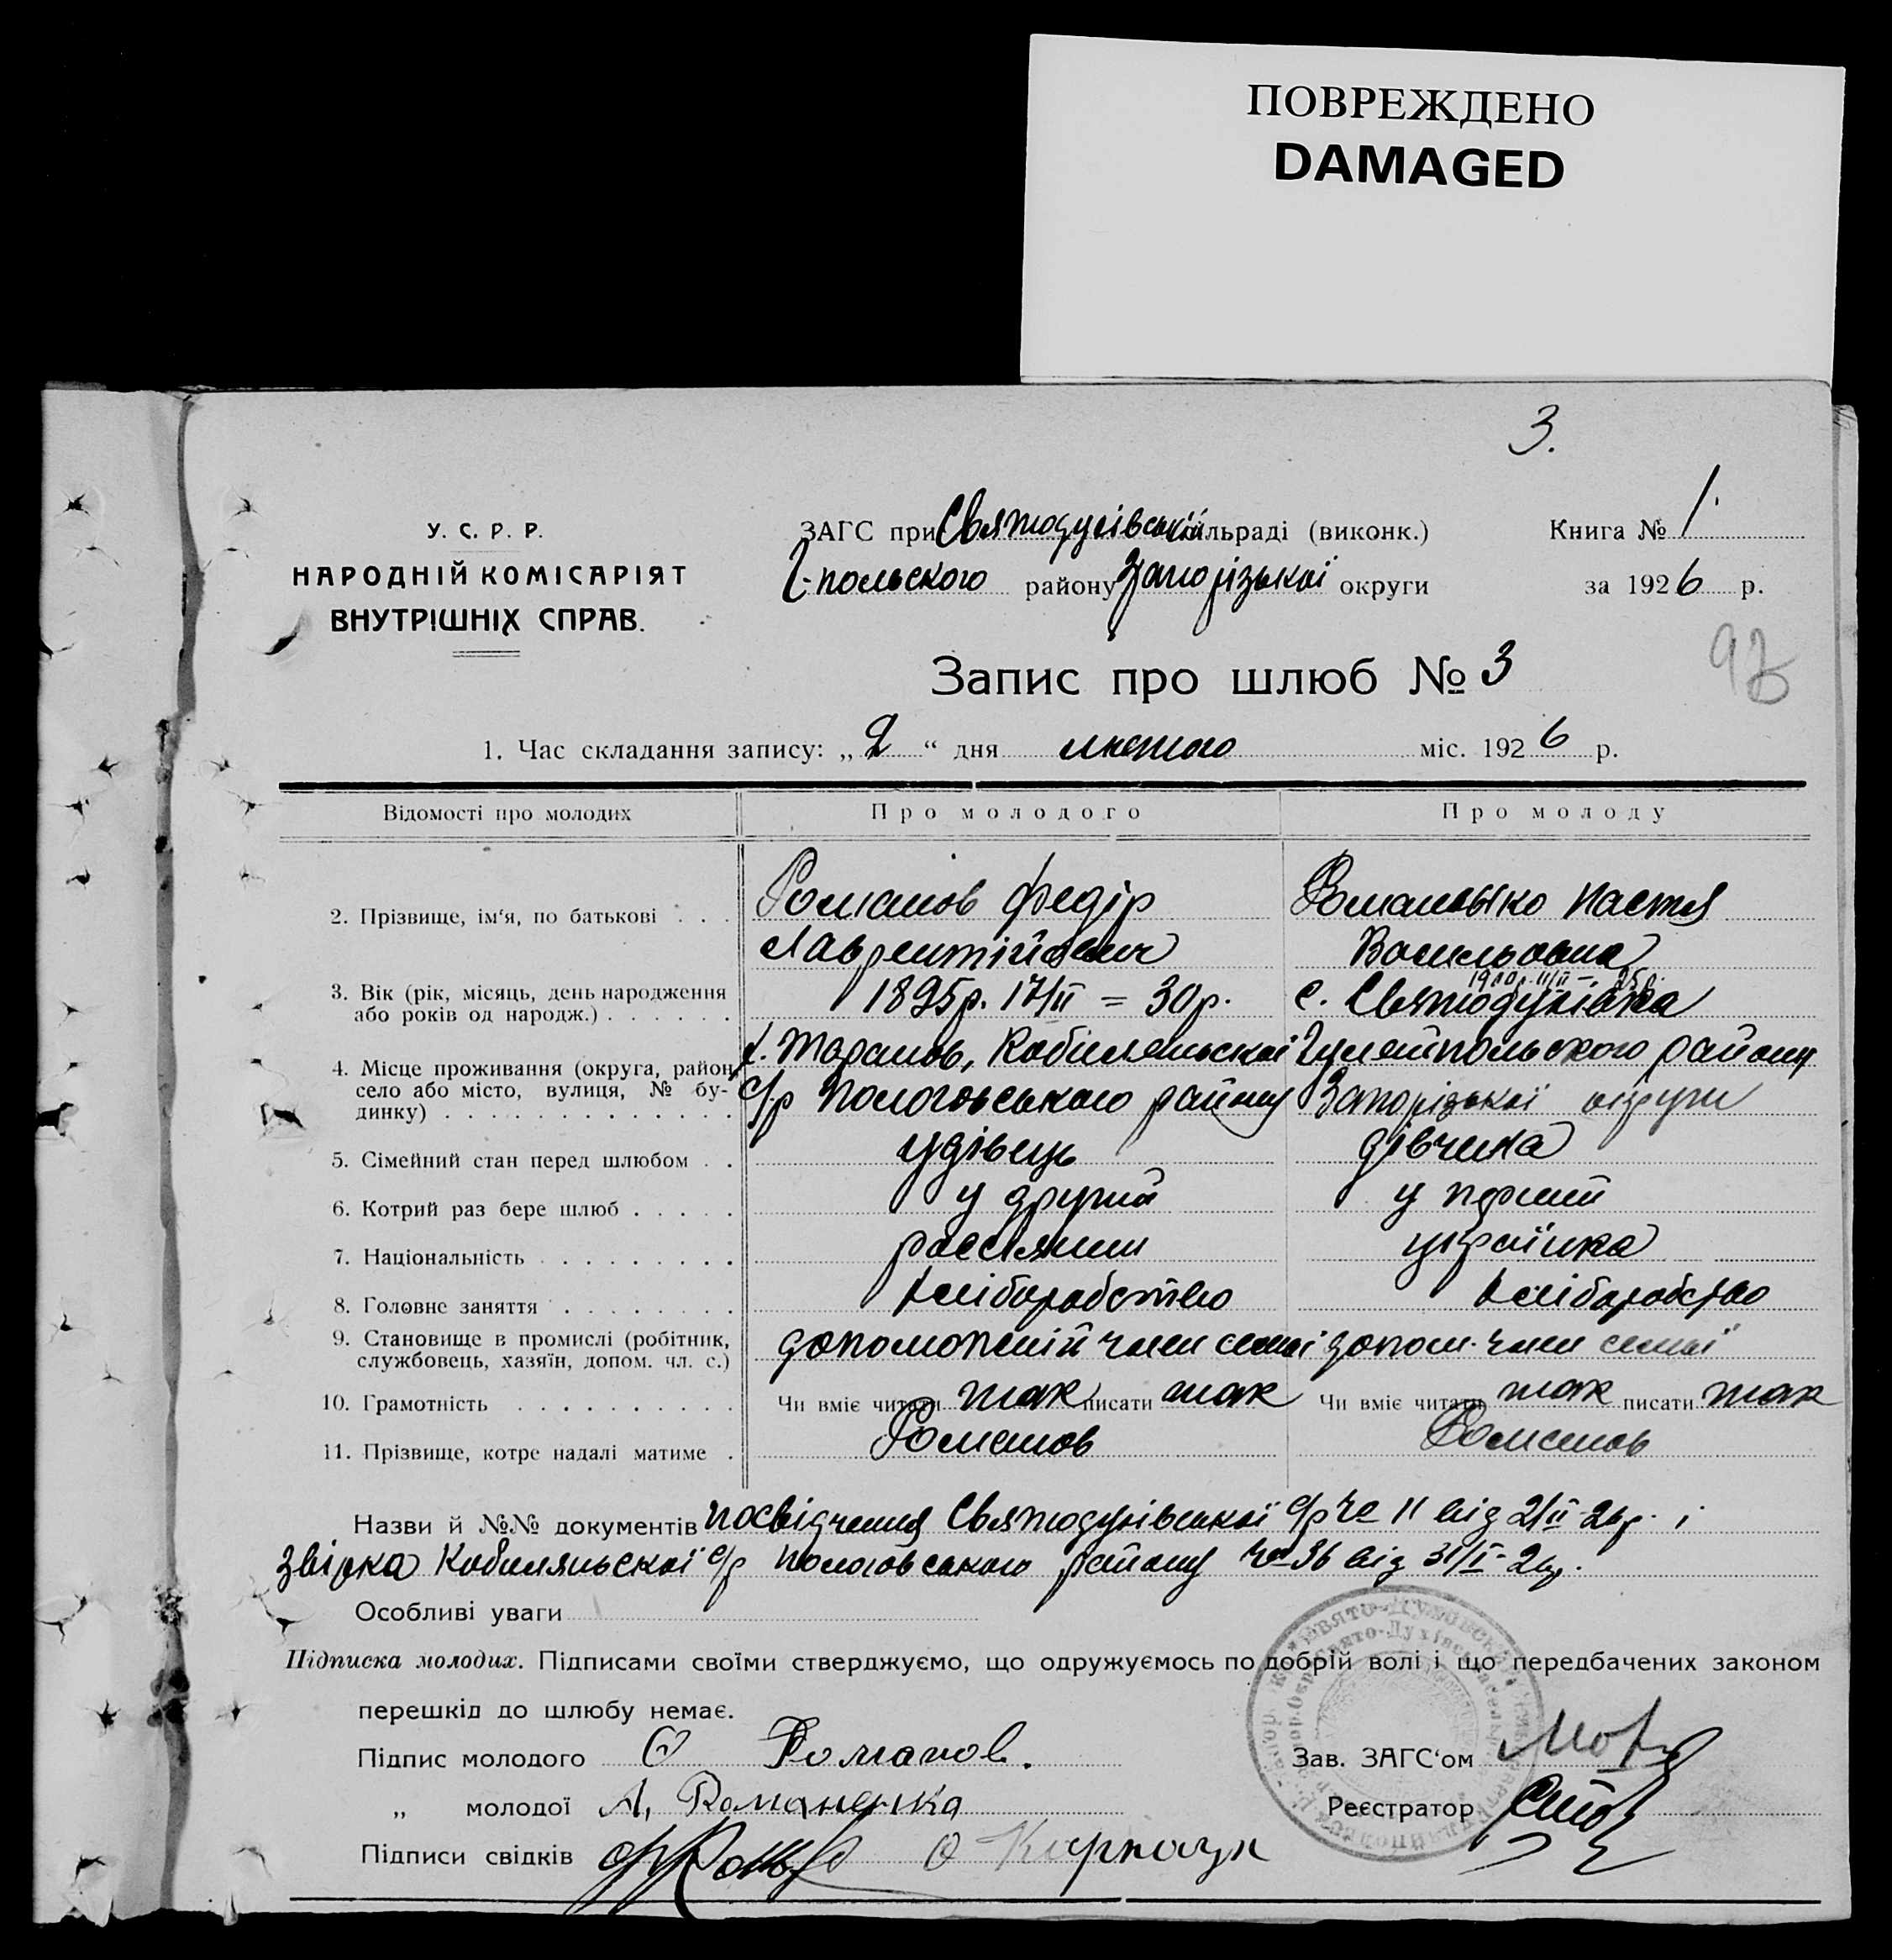 ПОВРЕЖДЕНО
DAMAGED
3.
У. С. Р. Р.
НАРОДНІЙ КОМІСАРІЯТ
ВНУТРІШНІХ СПРАВ.
ЗАГС при Святодухівській сільраді (виконк.) Книга № 1.
Г-польского району Запорізької округи за 1926 р.
Запис про шлюб № 3
1. Час складання запису: „2“ дня лютого міс. 1926 р.
Відомості про молодих Про молодого Про молоду
2. Прізвище, ім'я, по батькові . . . Романов Федір Настя
Лаврентійович Васильовна
3. Вік (рік, місяць, день народження або років од народж.) . . . . . . 1895р. 17/II = 30р. с. Святодухівка
4. Місце проживання (округа, район, село або місто, вулиця, № будинку) . . . х. Тарасов, Кобиляньскої Гуляйпольського району
с/р Пологовського району Запорізької округи
5. Сімейний стан перед шлюбом . . удівець дівчина
6. Котрий раз бере шлюб . . . . . у другий у перший
7. Національність . . . . . . . . . росіянин українка
8. Головне заняття . . . . . . . . хліборобство хліборобство
9. Становище в промислі (робітник, службовець, хазяїн, допом. чл. с.) допоможній член семьї допом. член семьї
10. Грамотність . . . . . . . . . . Чи вміє читати так писати так Чи вміє читати так писати так
11. Прізвище, котре надалі матиме . Романов Романов
Назви й №№ документів посвідчення Святодухівської с/р Че 11 від 2/II-26р. і
звірка Кобиляньскої с/р Пологовського району Че 36 від 31/I-26р.
Особливі уваги
Підписка молодих. Підписами своїми стверджуємо, що одружуємось по добрій волі і що передбачених законом
перешкід до шлюбу немає.
Підпис молодого Ф Романов. Зав. ЗАГС'ом
„ молодої А, Романенка Реєстратор
Підписи свідків